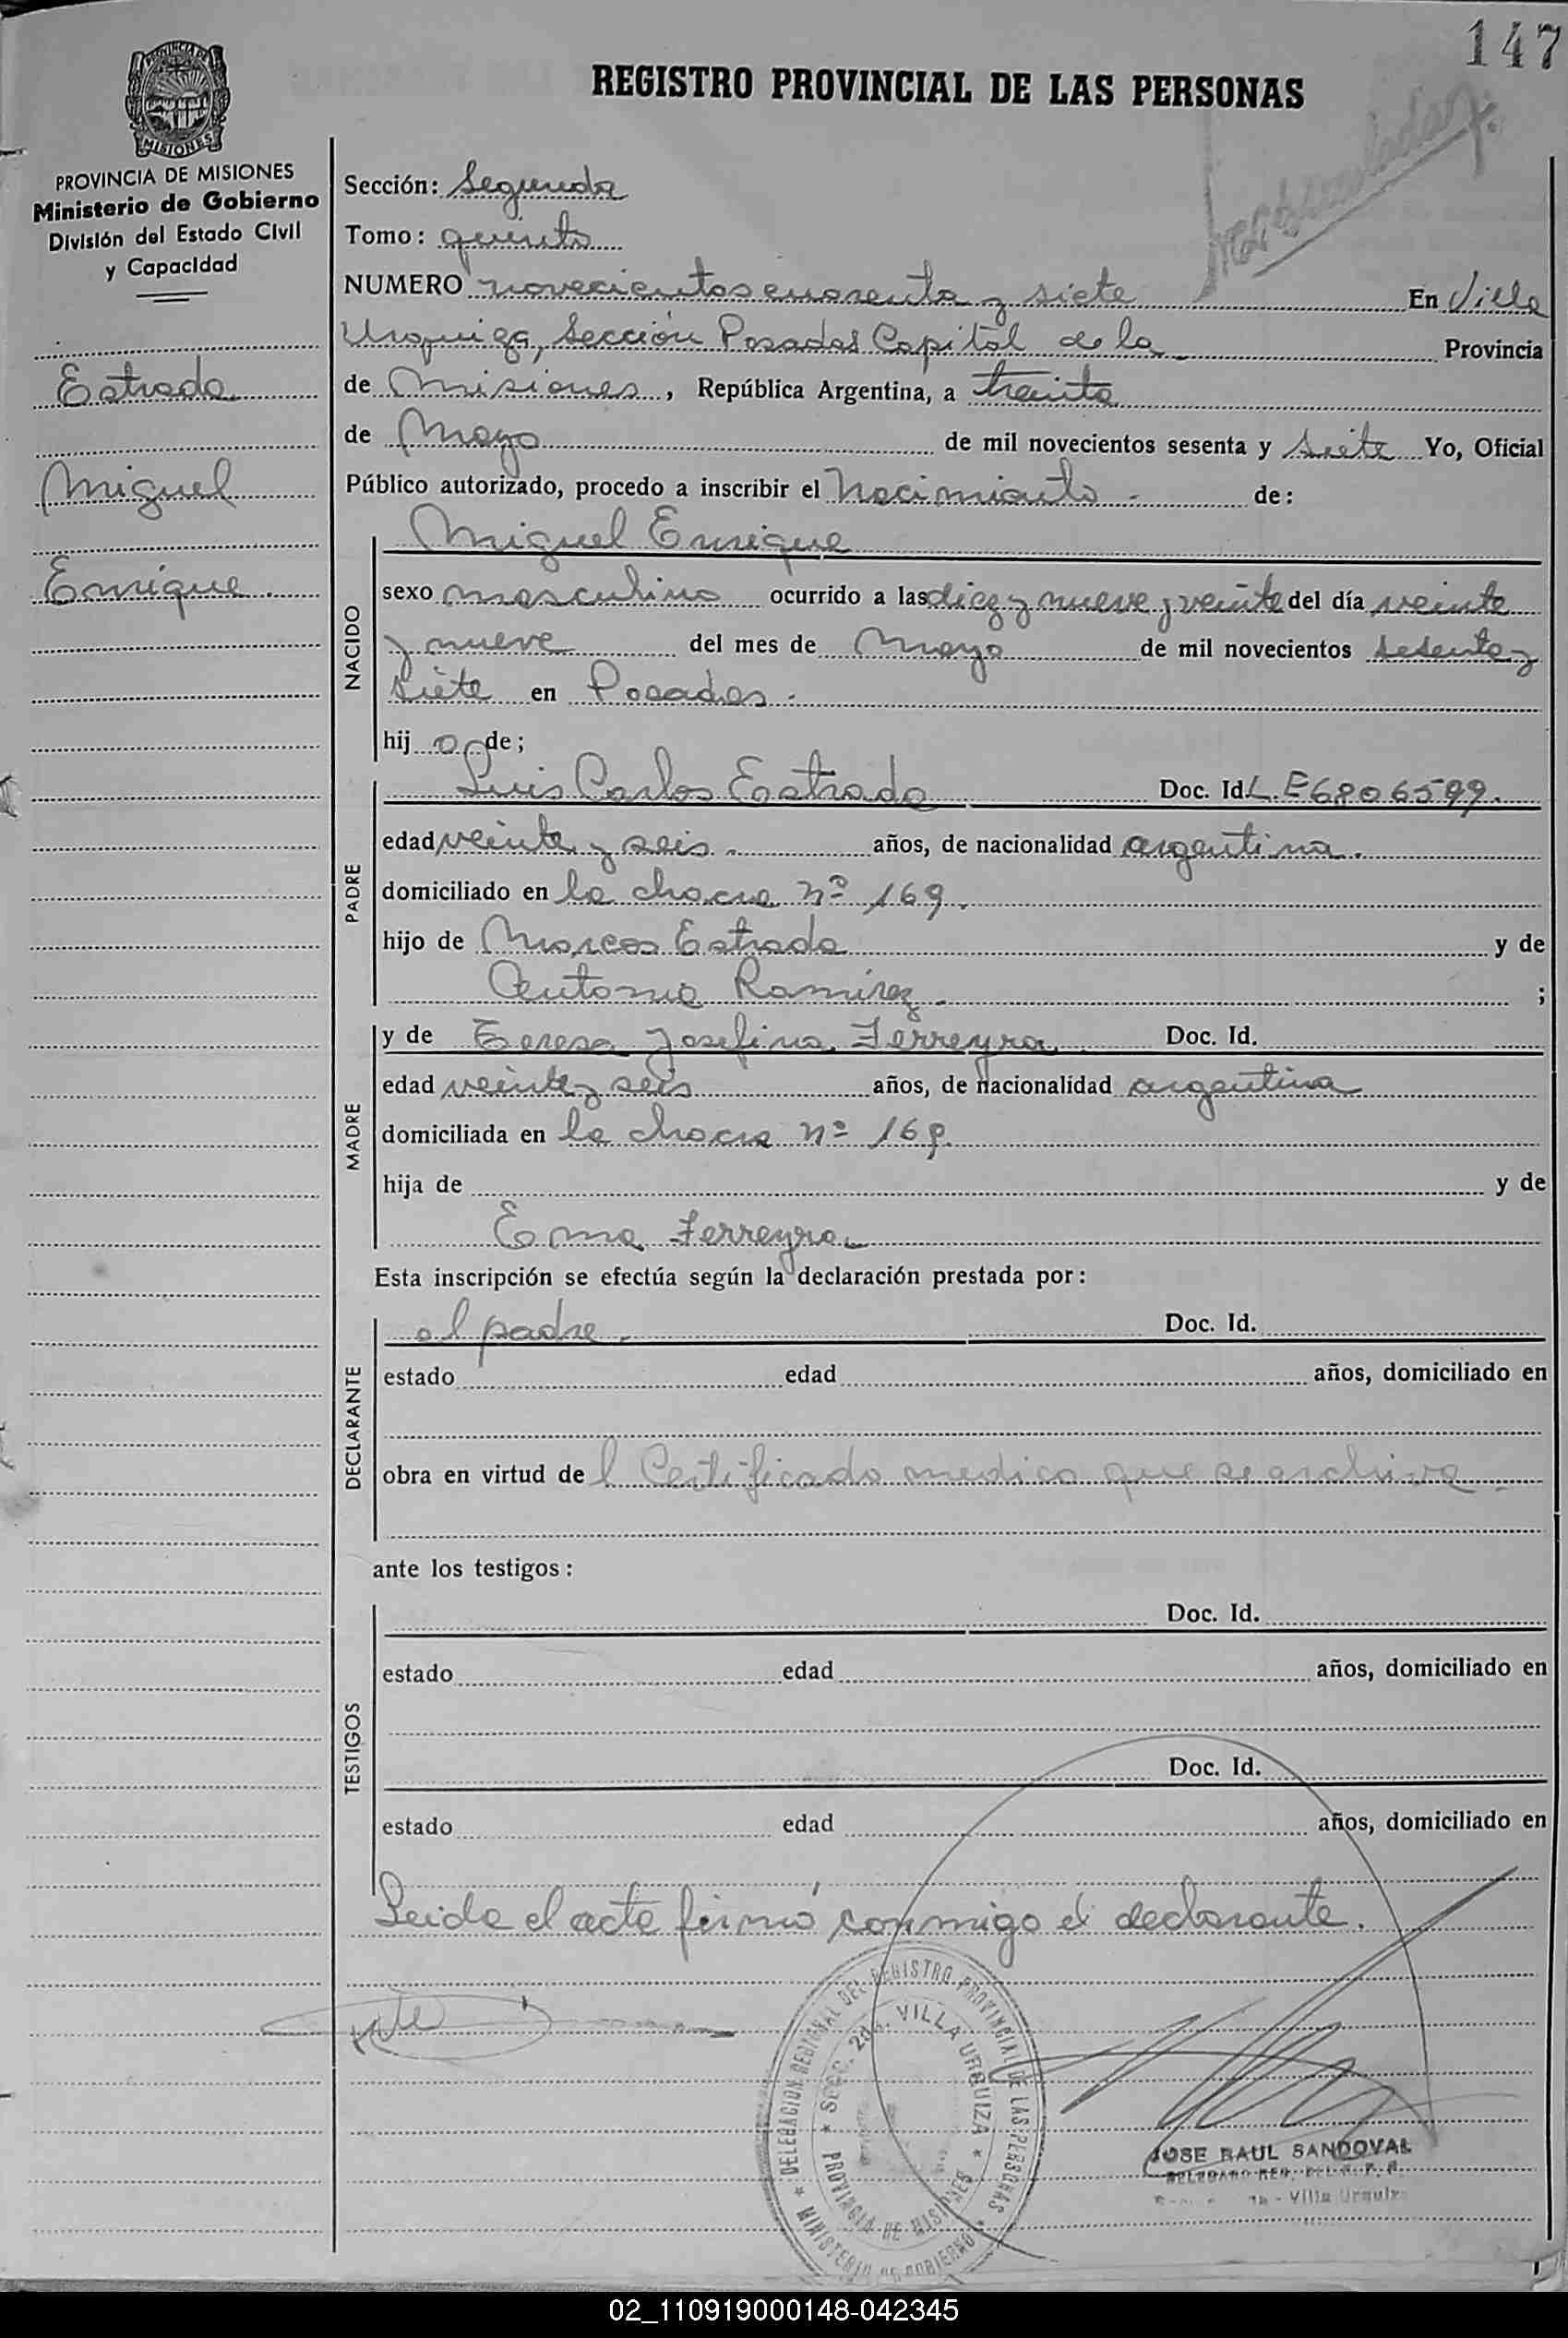 147
REGISTRO PROVINCIAL DE LAS PERSONAS
PROVINCIA DE
MISIONES
PROVINCIA DE MISIONES
Ministerio de Gobierno
División del Estado Civil
y Capacidad
Estrada
Miguel
Enrique.
Sección: Segunda
Tomo: quinto
NUMERO novecientos cuarenta y siete En Villa
Urquiza, Sección Posadas Capital de la Provincia
de Misiones, República Argentina, a treinta
de Mayo de mil novecientos sesenta y siete Yo, Oficial
Público autorizado, procedo a inscribir el Nacimiento - de:
NACIDO
Miguel Enrique
sexo masculino ocurrido a las diez y nueve y veinte del día veinte
y nueve del mes de Mayo de mil novecientos sesenta y
siete en Posadas.
hij o de;
PADRE
Luis Carlos Estrada Doc. Id. L.E 6806599.
edad veinte y seis. años, de nacionalidad argentina.
domiciliado en la chacra nº 169.
hijo de Marcos Estrada y de
Antonia Ramírez. ;
MADRE
y de Teresa Josefina Ferreyra Doc. Id.
edad veinte y seis años, de nacionalidad argentina
domiciliada en la chacra nº 169.
hija de y de
Ema Ferreyra
Esta inscripción se efectúa según la declaración prestada por:
DECLARANTE
el padre. Doc. Id.
estado edad años, domiciliado en
obra en virtud de l Certificado medico que se archiva.
ante los testigos:
TESTIGOS
Doc. Id.
estado edad años, domiciliado en
Doc. Id.
estado edad años, domiciliado en
Leida el acta firmó conmigo el declarante.
DELEGACION REGIONAL DEL REGISTRO PROVINCIAL DE LAS PERSONAS
SECC. 2da. VILLA URQUIZA
PROVINCIA DE MISIONES
MINISTERIO DE GOBIERNO
JOSE RAUL SANDOVAL
DELEGADO REG. DEL R. P. P.
- Villa Urquiza
02_110919000148-042345